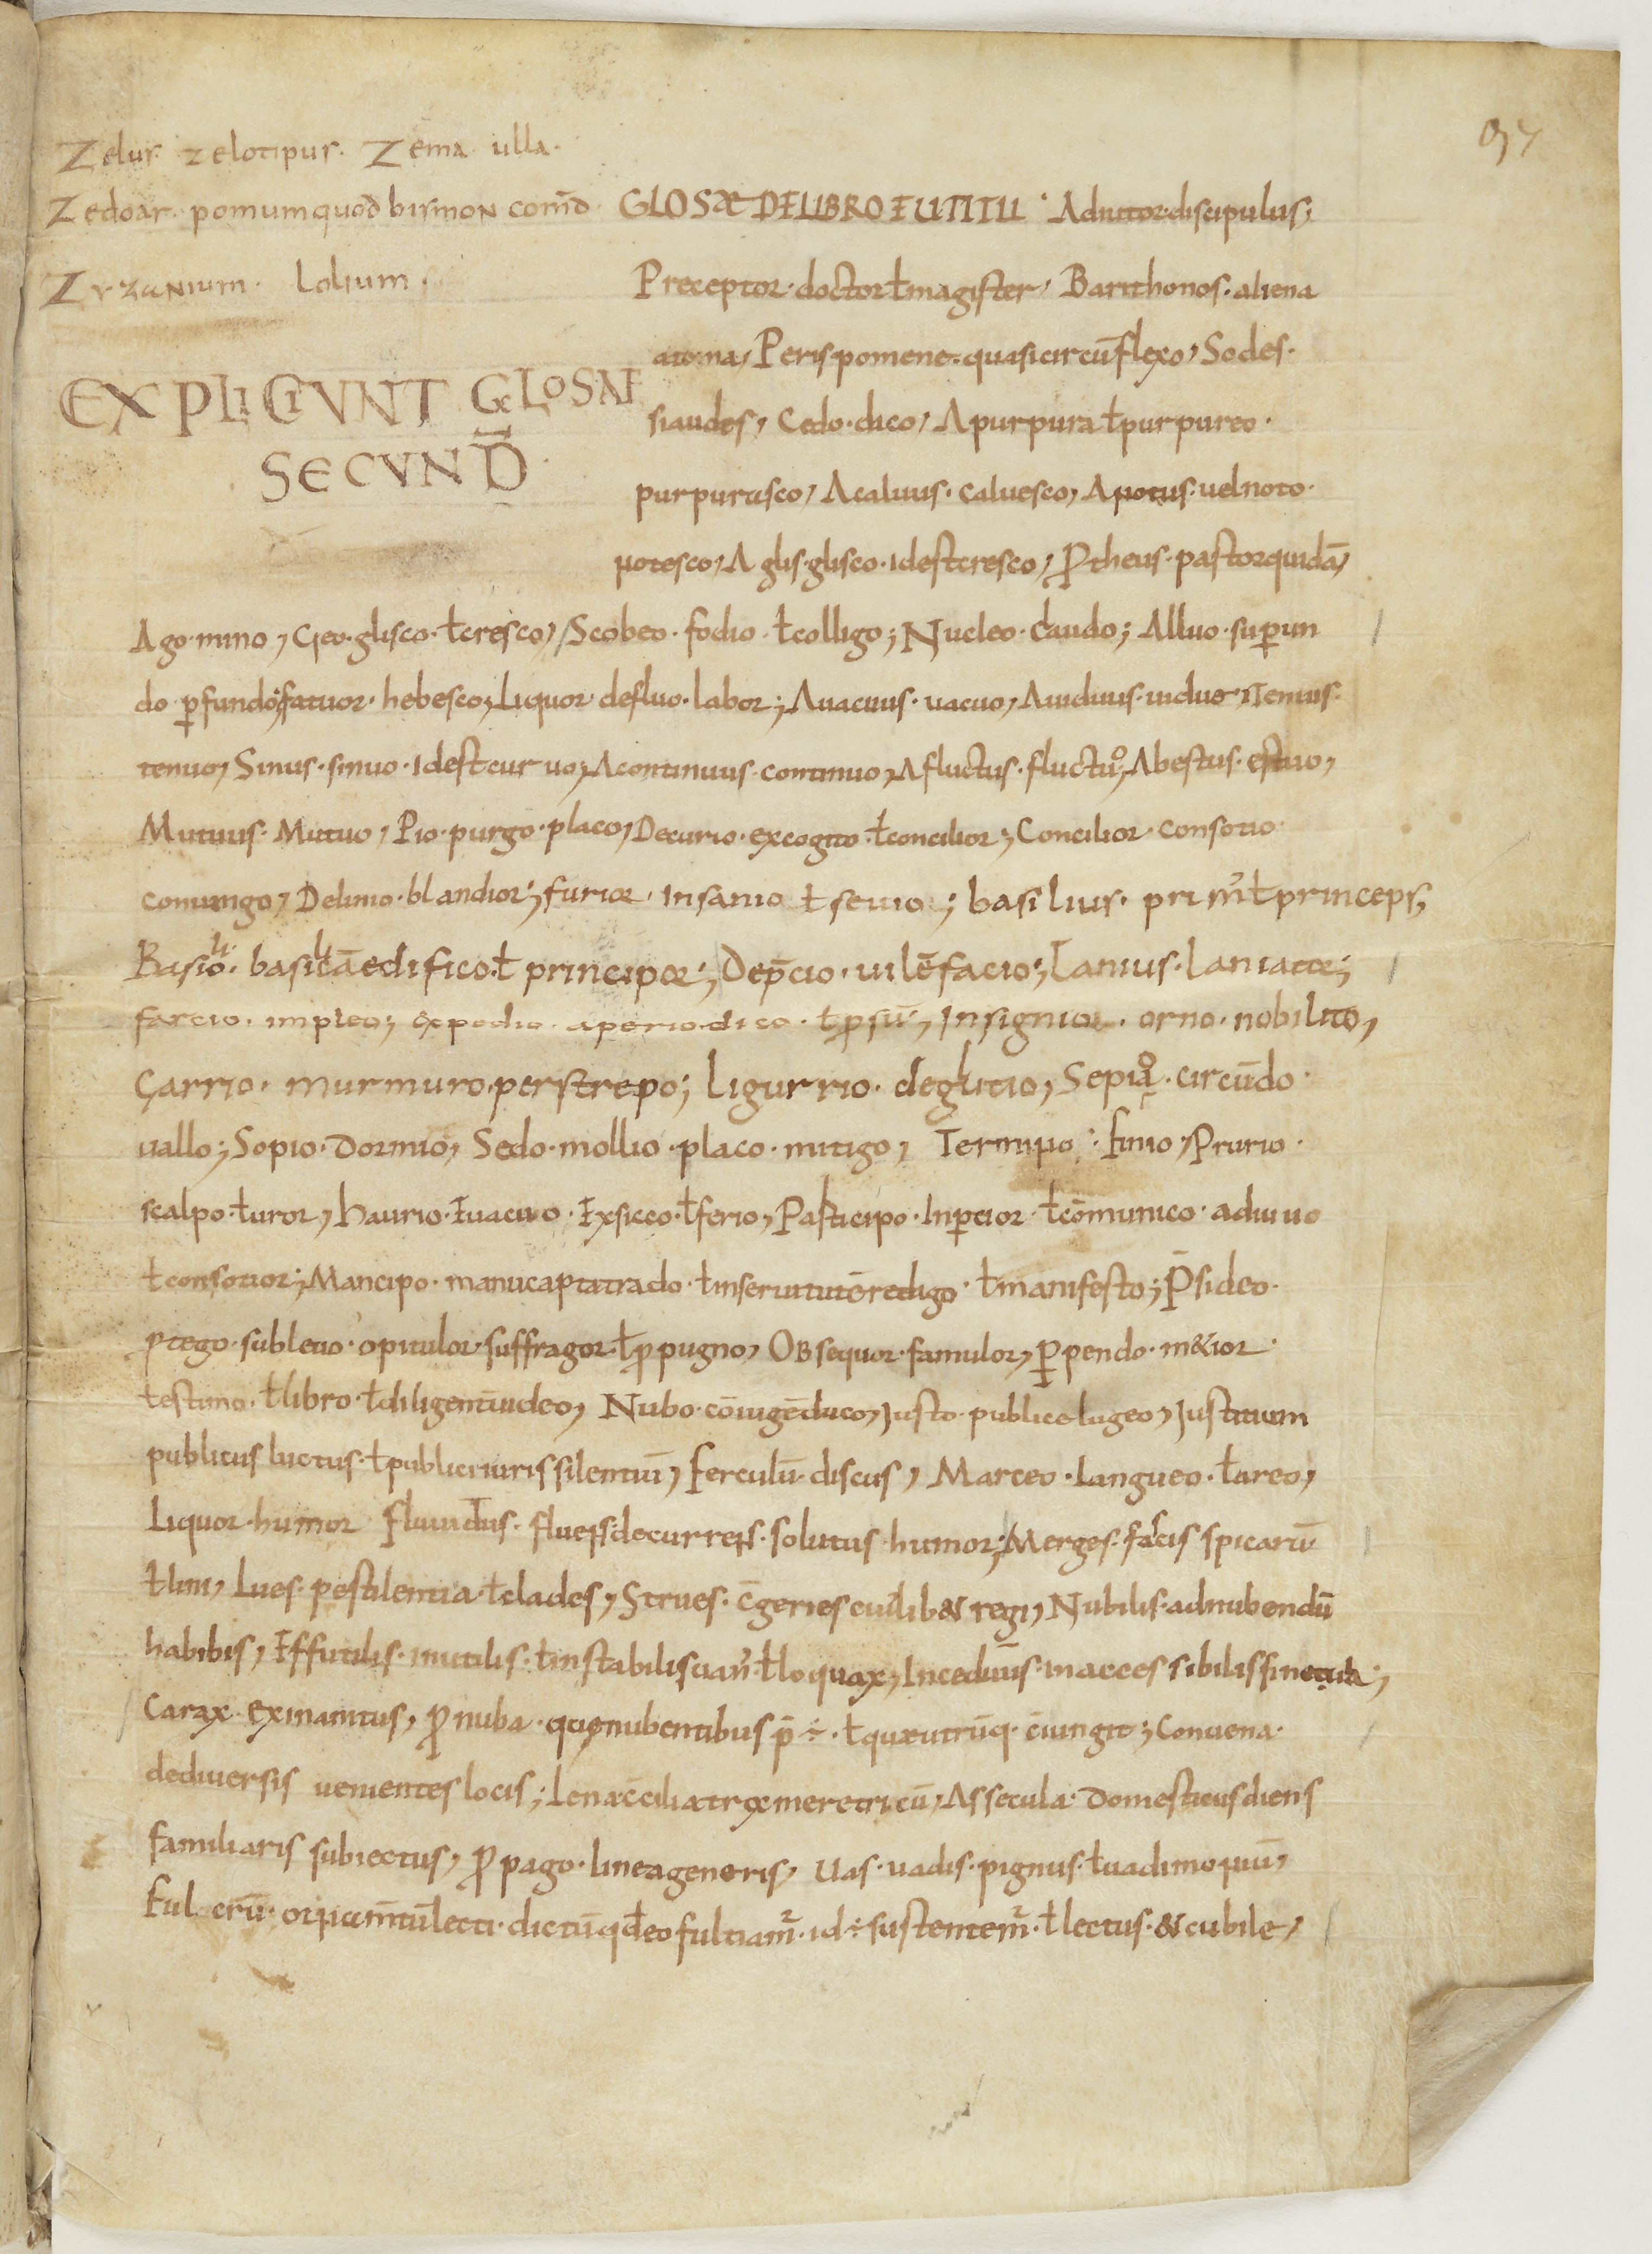 97
Zelus. zelotipus. Zema. ulla.
Zedoar. pomum quod bismon com̄d.
Zyzanium. Lolium.
EXPLICIVNT GLOSAE
SECVND
GLOSAE DE LIBRO EUTITII. Adiutor. discipulus;
Preceptor. doctor ł magister, Barithonos. aliena
Perispomene. quasi circūflexo, Sodes.
si audes, Cedo. dico, A purpura ł purpureo.
purpurasco, A caluus. caluesco, A notus. uel noto.
notesco, A glis. glisco. id est cresco, ꝓtheus. pastor quidā,
Ago. mino, Cieo. glisco. ł cresco, Scobeo. fodio. ł colligo; Nucleo. claudo; Alluo. suꝑun
do ꝑfundo; fatuor. hebesco, Liquor. defluo. labor; A uacuus. uacuo, A uiduus. uiduo, Tenuis.
tenuo, Sinus. sinuo. id est curuo, A continuus. continuo, A fluctus. fluctuo, Ab estus. estuo,
Mutuus. Mutuo, Pio. purgo. placo, Decurio. excogito. ł concilior; Concilior. consotio.
coniungo, Delinio. blandior; furior. insanio ł seuio; basilius. prim᷒ ł princeps,
Basilio. basilicā edifico. ł principor; Dep̄cio. uilē facio; Lanius. laniator;
farcio. impleo; Expedio. aperio. dico. ł ꝓsū, Insignior. orno. nobilito,
Garrio. murmuro. perstrepo; ligurrio. deglutio, Sepio. circūdo.
uallo; Sopio. Dormio, Sedo. mollio. placo. mitigo, Termino. finio, Prurio.
scalpo. ł uror, haurio. Euacuo. Exsicco. ł ferio, Participo. Inꝑcior. ł cōmunico. adiuuo
ł consotior; Mancipo. manu capta trado. ł in seruitutē redigo. ł manifesto; P̄sideo.
ꝓtego. subleuo. opitulor. suffragor. ł ꝓpugno, Obsequor. famulor, Ꝑpendo. m&ior.
ł estimo. ł libro. ł diligent̄ uideo, Nubo. cōiugē duco, Justo. publice lugeo, Justitium
publicus luctus. ł publici iuris silentiū, Ferculū. discus, Marceo. langueo. ł areo,
Liquor. humor Fluuidus. fluens. decurrens. solutus humor; Merges. fascis spicarū
ł lini, Lues. pestilentia. ł clades, Strues. c̄geries cuilib& regi, Nubilis. ad nubendū
habibis, Effutilis. inutilis. ł instabilis uan᷒. ł loquax,
Carax. exinanitus, ꝓnuba. ł quae utrūq. c̄iungit; Conuena.
de diuersis uenientes locis; Lena c̄ciliatrix meretricū, Assecula. Domesticus cliens
familiaris subiectus, ꝓpago. linea generis, Uas. uadis. pignus. ł uadimoniū,
Fulcrū. ornam̄tū lecti. dictū qd eo fultiam᷑. id ÷ sustentem᷑. ł lectus. & cubile,